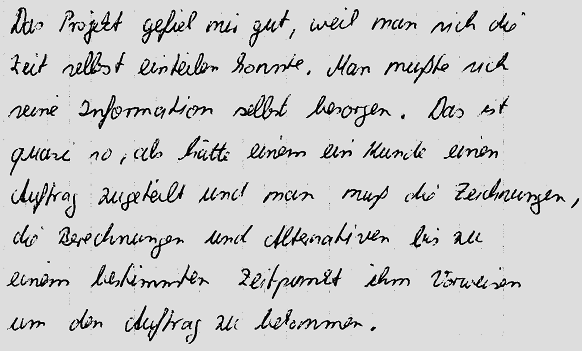 Das Projekt gefiel mir gut, weil man sich die
Zeit selbst einteilen konnte. Man mußte sich
seine Information selbst besorgen. Das ist
quasi so, als hätte einem ein Kunde einen
Auftrag zugeteilt und man muß die Zeichnungen,
die Berechnungen und Alternativen bis zu
einem bestimmten Zeitpunkt ihm Vorweisen
um den Auftrag zu bekommen.